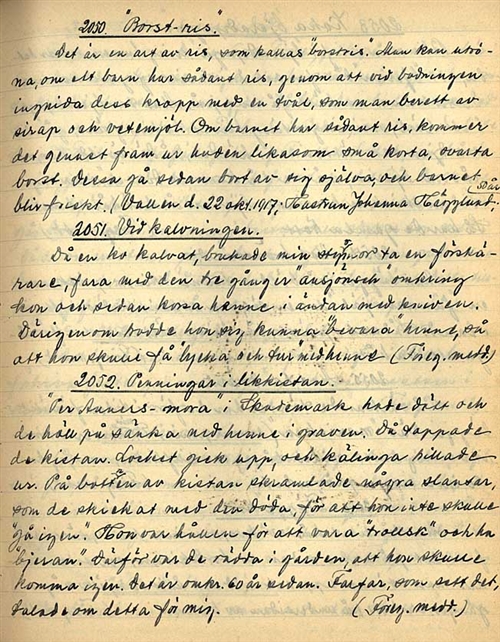 2050. "Borst-ris."
Det är en art av ris, som kallas "borstris". Man kan utrö-
na, om ett barn har sådant ris, genom att vid badningen
ingnida dess kropp med en tvål, som man berett av
sirap och vetemjöl. Om barnet har sådant ris, kommer
det genast fram ur huden likasom små korta, svarta
borst. Dessa gå sedan bort av sig själva, och barnet
blir friskt. (Vallen d. 22 okt. 1917, Hustrun Johanna Hägglund. 50 år)
2051. Vid kalvningen.
Då en ko kalvat, brukade min styvmor ta en förskä-
rare, fara med den tre gånger "ansjönsch" omkring
kon och sedan korsa henne i ändan med kniven.
Därigenom trodde hon sig kunna "bevara" henne, så
att hon skulle få "lycka och tur" med henne (Föreg. medd.)
2052. Penningar i likkistan.
"Per Anners-mora" i Skademark hade dött och
de höll på sänka ned henne i graven. Då tappade
de kistan. Locket gick upp, och kälinga trillade
ur. På botten av kistan skramlade några slantar,
som de skickat med den döda, för att hon inte skulle
"gå igen". Hon var hållen för att vara "trollsk" och ha
"bjeran". Därför var de rädda i gården, att hon skulle
komma igen. Det är omkr. 60 år sedan. Farfar, som sett det,
talade om detta för mig. (Föreg. medd.)